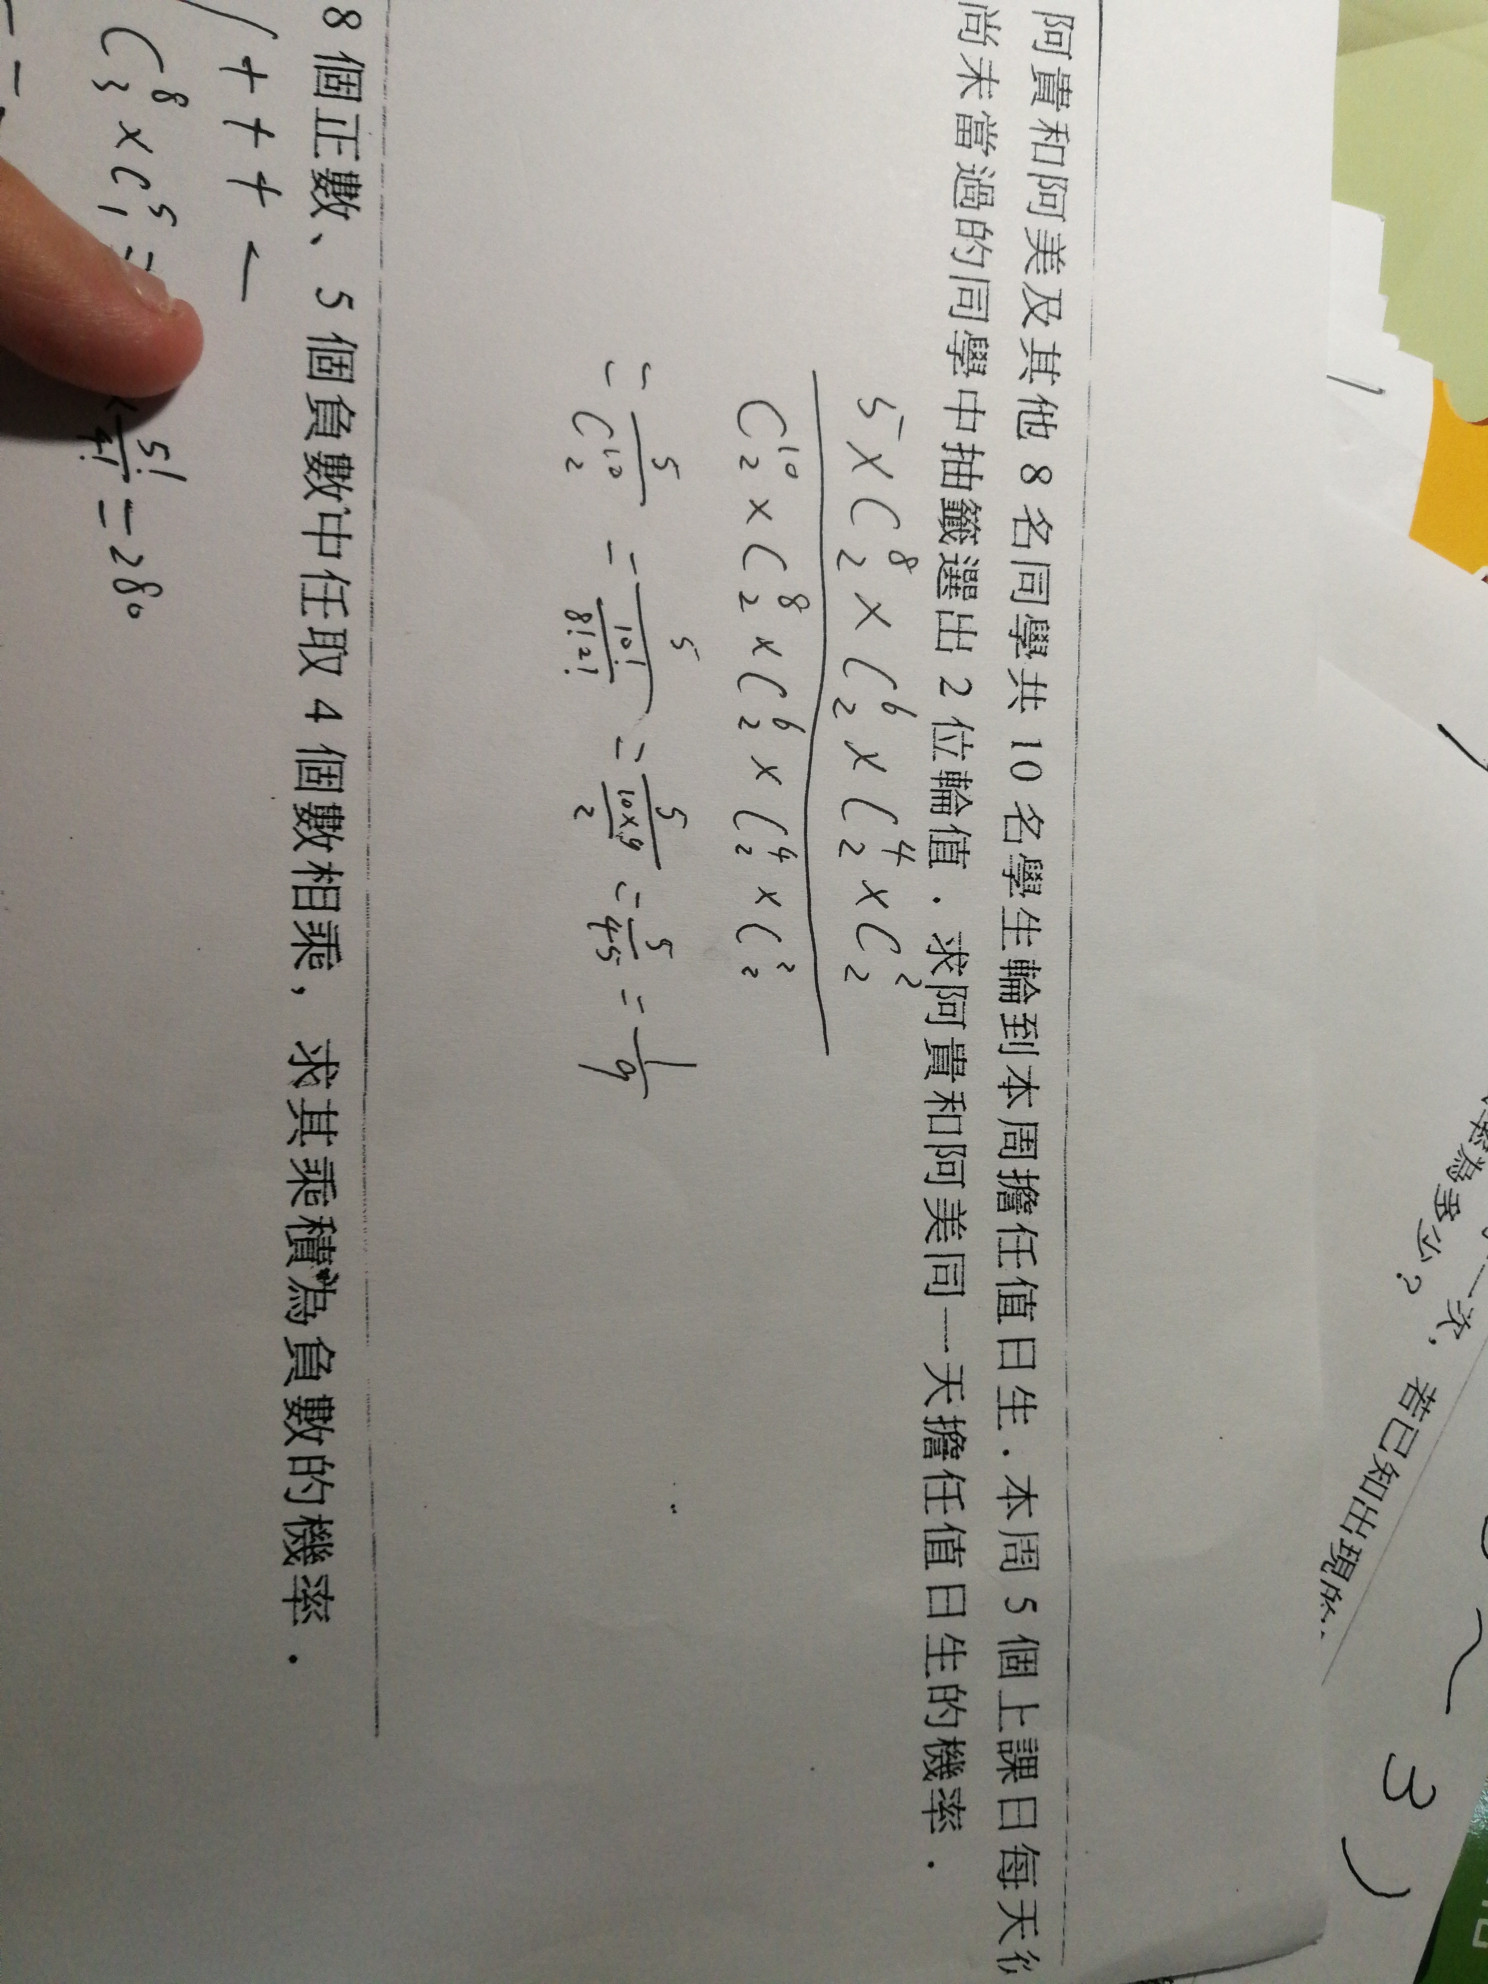 阿貴和阿美及其他 8 名同學共 10 名學生輪到本周擔任值日生．本周 5 個上課日每天從
尚未當過的同學中抽籤選出 2 位輪值．求阿貴和阿美同一天擔任值日生的機率．
5×C⁸₂×C⁶₂×C⁴₂×C²₂
C¹⁰₂×C⁸₂×C⁶₂×C⁴₂×C²₂
= 5/C¹⁰₂ = 5/(10!/8!2!) = 5/(10×9/2) = 5/45 = 1/9
8 個正數、5 個負數中任取 4 個數相乘，求其乘積為負數的機率．
+ + + −
C⁸₃×C⁵₁=
5!/4! = 280
一次，若已知出現
3)